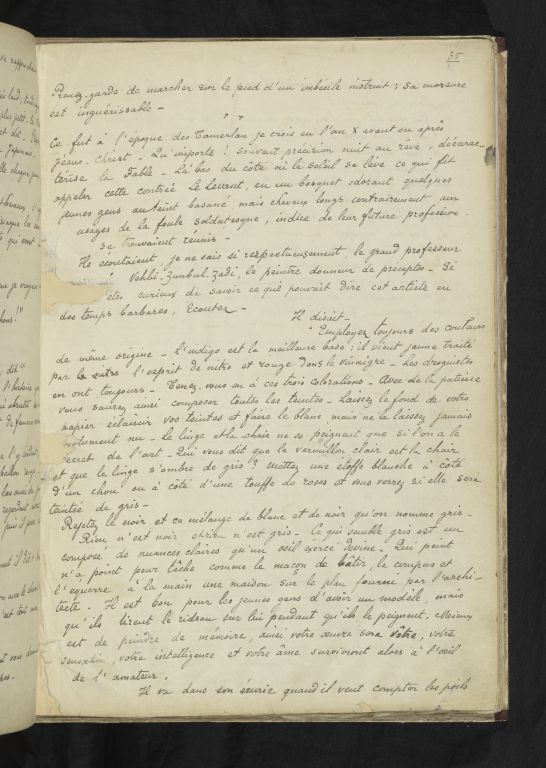 35
Prenez garde de marcher sur le pied d'un imbécile instruit : sa morsure
est inguérissable -
Ce fut à l'époque des Tamerlan je crois en l'an X avant ou après
Jésus-Christ - Qu'importe ! Souvent précision nuit au rêve, décarac-
térise la Fable - Là bas du côté où le soleil se lève ce qui fit
appeler cette contrée Le Levant, en un bosquet odorant quelques
jeunes gens au teint basané mais cheveux longs contrairement aux
usages de la foule soldatesque, indice de leur future profession -
se trouvaient réunis -
Ils écoutaient, je ne sais si respectueusement, le grand professeur
Vehbi-Zunbul-Zadi, le peintre donneur de preceptes - Si
êtes curieux de savoir ce que pouvait dire cet artiste en
des temps barbares, Ecoutez -
Il disait -
"Employez toujours des couleurs
de même origine - L'indigo est la meilleure base ; il vient jaune traité
par l'esprit de nitre et rouge dans le vinaigre - Les droguistes
en ont toujours - Tenez vous en à ces trois colorations - Avec de la patience
vous saurez ainsi composer toutes les teintes - Laissez le fond de votre
papier éclaircir vos teintes et faire le blanc mais ne la laissez jamais
absolument nu - Le linge et la chair ne se peignent que si l'on a le
secret de l'art - Qui vous dit que le vermillon clair est la chair
et que le linge s'ombre de gris ? Mettez une étoffe blanche à côté
d'un chou ou à côté d'une touffe de roses et vous verrez si elle sera
teintée de gris -
Rejetez le noir et ce mélange de blanc et de noir qu'on nomme gris -
Rien n'est noir et rien n'est gris - Ce qui semble gris est un
composé de nuances claires qu'un oeil exercé devine - Qui peint
n'a point pour tâche comme le maçon de bâtir, le compas et
l'équerre à la main une maison sur le plan fourni par l'archi-
tecte. Il est bon pour les jeunes gens d'avoir un modèle, mais
qu'ils tirent le rideau sur lui pendant qu'ils le peignent, Mieux
est de peindre de mémoire, ainsi votre œuvre sera vôtre, votre
sensation, votre intelligence et votre âme survivront alors à l'oeil
de l'amateur.
Il va dans son écurie quand il veut compter les poils